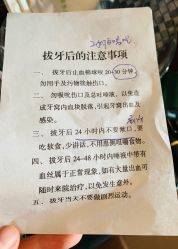 拔牙后的注意事项
一、 拔牙后止血棉球咬 20-30 分钟，
勿用手及污物接触伤口。
二、 勿吸吮伤口及总吐唾液，以免造
成牙窝内血块脱落，引起牙窝出血及
感染。
三、 拔牙后 24 小时内不要漱口，要
吃软食，少讲话，不用患侧咀嚼食物。
四、 拔牙后 24-48 小时内唾液中带有
血丝属于正常现象，如有大量出血可
随时来院治疗，以免发生意外。
五、拔牙当天不要做剧烈运动。